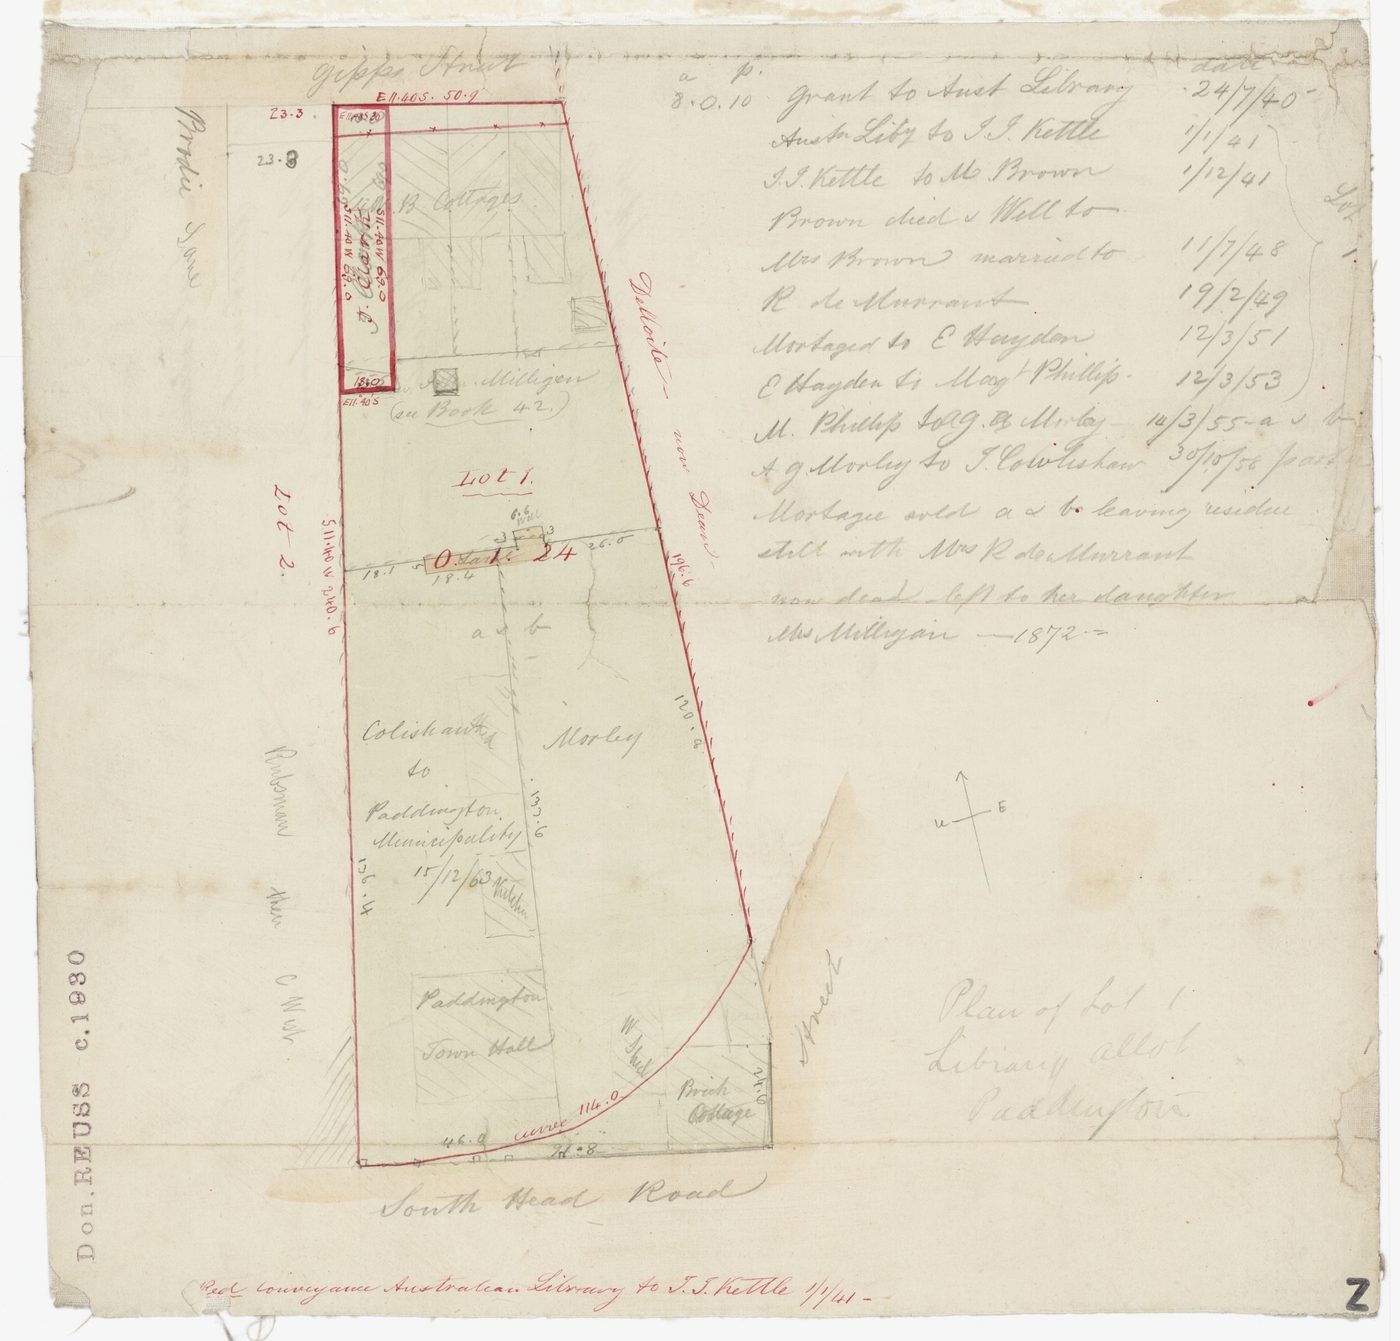 Gipps Street
E11.40S. 50.9
23.3
23.9
Brodie Lane
S11.40W 63.0
S11.40W 63.0
B Cottages
E11.40S
Milligen
(see Book 42.)
Lot 1.
Lot 2.
S11.40W 240.6
6.6
well
3
3
0. 1. 24
26.0
18.1
5
18.4
a & b
Delloite now Dean
196.6
120.
Colishaw
to
Paddington
Municipality
15/12/63
Morley
137.6
136.4
Kitchen
then C West.
Paddington
Town Hall
W Shed
Brick
Cottage
24.9
curve 114.0
46.0
South Head Road
Street
a p.
8.0.10 Grant to Aust Library
date
24/7/40
Austn Liby to J.J. Kettle 1/1/41
J.J. Kettle to M Brown 1/12/41
Brown died & Well to
Mrs Brown married to 11/7/48
R de Murrant 19/2/49
Mortaged to E Hayden 12/3/51
E Hayden to Mag Phillip 12/3/53
Lot 1.
M. Phillip to A G. Morley 14/3/55 - a & b
A G. Morley to J. Cowlishaw 30/10/56 part
Mortagee sold a & b. leaving residue
still with Mrs R de Murrant
now dead left to her daughter
Mrs Milligan — 1872 =
W E
Plan of Lot 1
Library Allot
Paddington
Don. REUSS c.1930
Red conveyance Australian Library to J.J. Kettle 1/1/41 -
Z